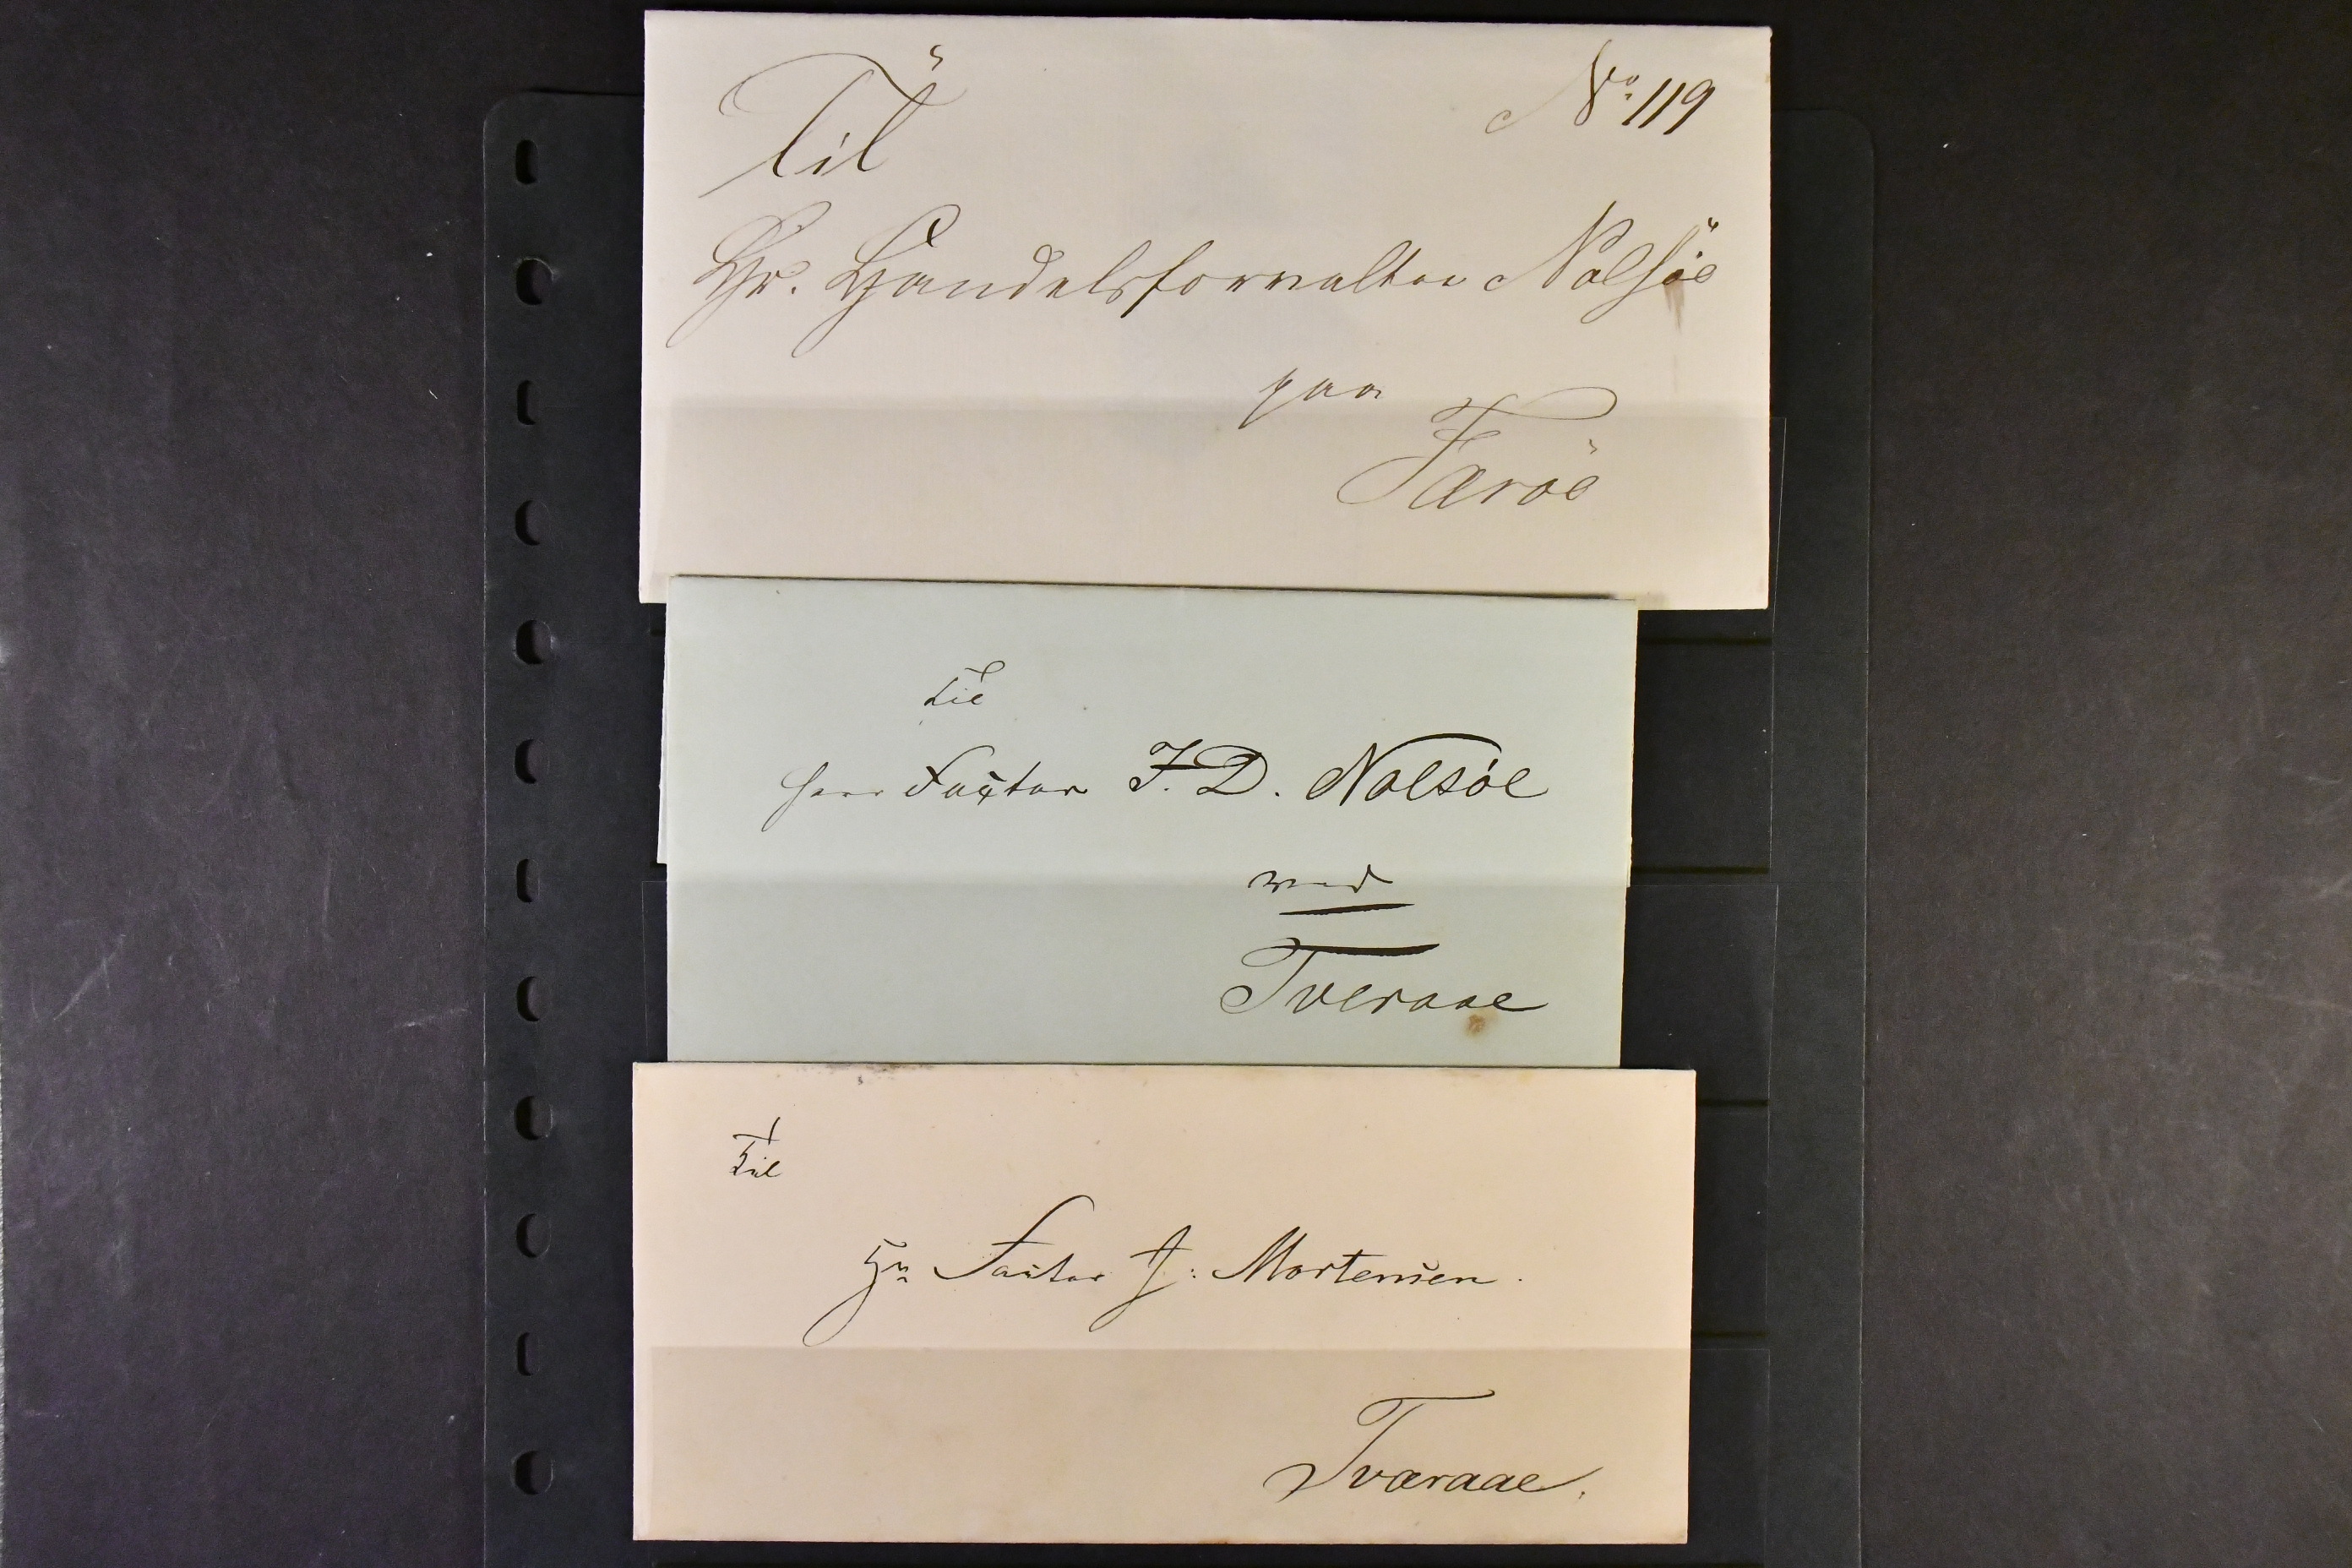 Til
No. 119
Hr. Handelsforvalter Nolsöe
paa
Færöe
Til
Herr Factor J. D. Nolsöe
ved
Tveraae
Til
Hr. Factor J: Mortensen.
Tværaae.